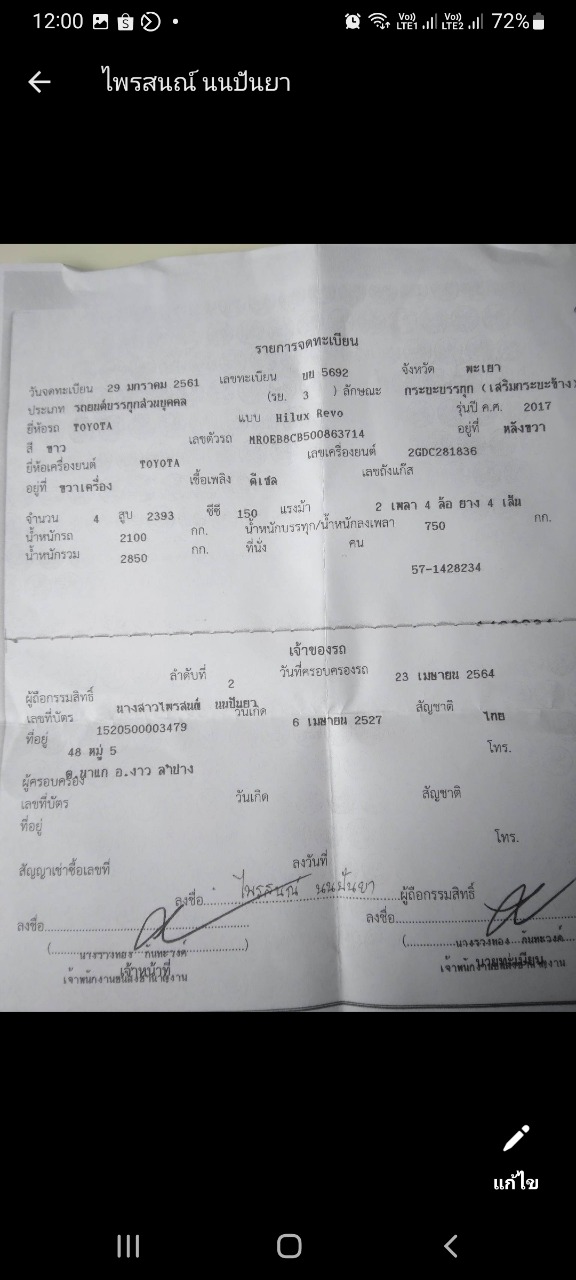 12:00
Vo)) LTE1 Vo)) LTE2 72%
ไพรสนณ์ นนปันยา
รายการจดทะเบียน
วันจดทะเบียน 29 มกราคม 2561 เลขทะเบียน ยย 5692 จังหวัด พะเยา
ประเภท รถยนต์บรรทุกส่วนบุคคล (รย. 3 ) ลักษณะ กระบะบรรทุก (เสริมกระบะข้าง)
ยี่ห้อรถ TOYOTA แบบ Hilux Revo รุ่นปี ค.ศ. 2017
สี ขาว เลขตัวรถ MR0EB8CB500863714 อยู่ที่ หลังขวา
ยี่ห้อเครื่องยนต์ TOYOTA เลขเครื่องยนต์ 2GDC281836
อยู่ที่ ขวาเครื่อง เชื้อเพลิง ดีเซล เลขถังแก๊ส
จำนวน 4 สูบ 2393 ซีซี 150 แรงม้า 2 เพลา 4 ล้อ ยาง 4 เส้น
น้ำหนักรถ 2100 กก. น้ำหนักบรรทุก/น้ำหนักลงเพลา 750 กก.
น้ำหนักรวม 2850 กก. ที่นั่ง คน
57-1428234
เจ้าของรถ
ลำดับที่ 2 วันที่ครอบครองรถ 23 เมษายน 2564
ผู้ถือกรรมสิทธิ์ นางสาวไพรสนณ์ นนปันยา
เลขที่บัตร 1520500003479 วันเกิด 6 เมษายน 2527 สัญชาติ ไทย
ที่อยู่ 48 หมู่ 5 โทร.
ต.นาแก อ.งาว ลำปาง
ผู้ครอบครอง
เลขที่บัตร วันเกิด สัญชาติ
ที่อยู่
โทร.
สัญญาเช่าซื้อเลขที่ ลงวันที่
ลงชื่อ ไพรสนณ์ นนปันยา ผู้ถือกรรมสิทธิ์
ลงชื่อ ลงชื่อ
(นางรวงทอง กันทะวงค์) (นางรวงทอง กันทะวงค์
เจ้าหน้าที่ นายทะเบียน
แก้ไข